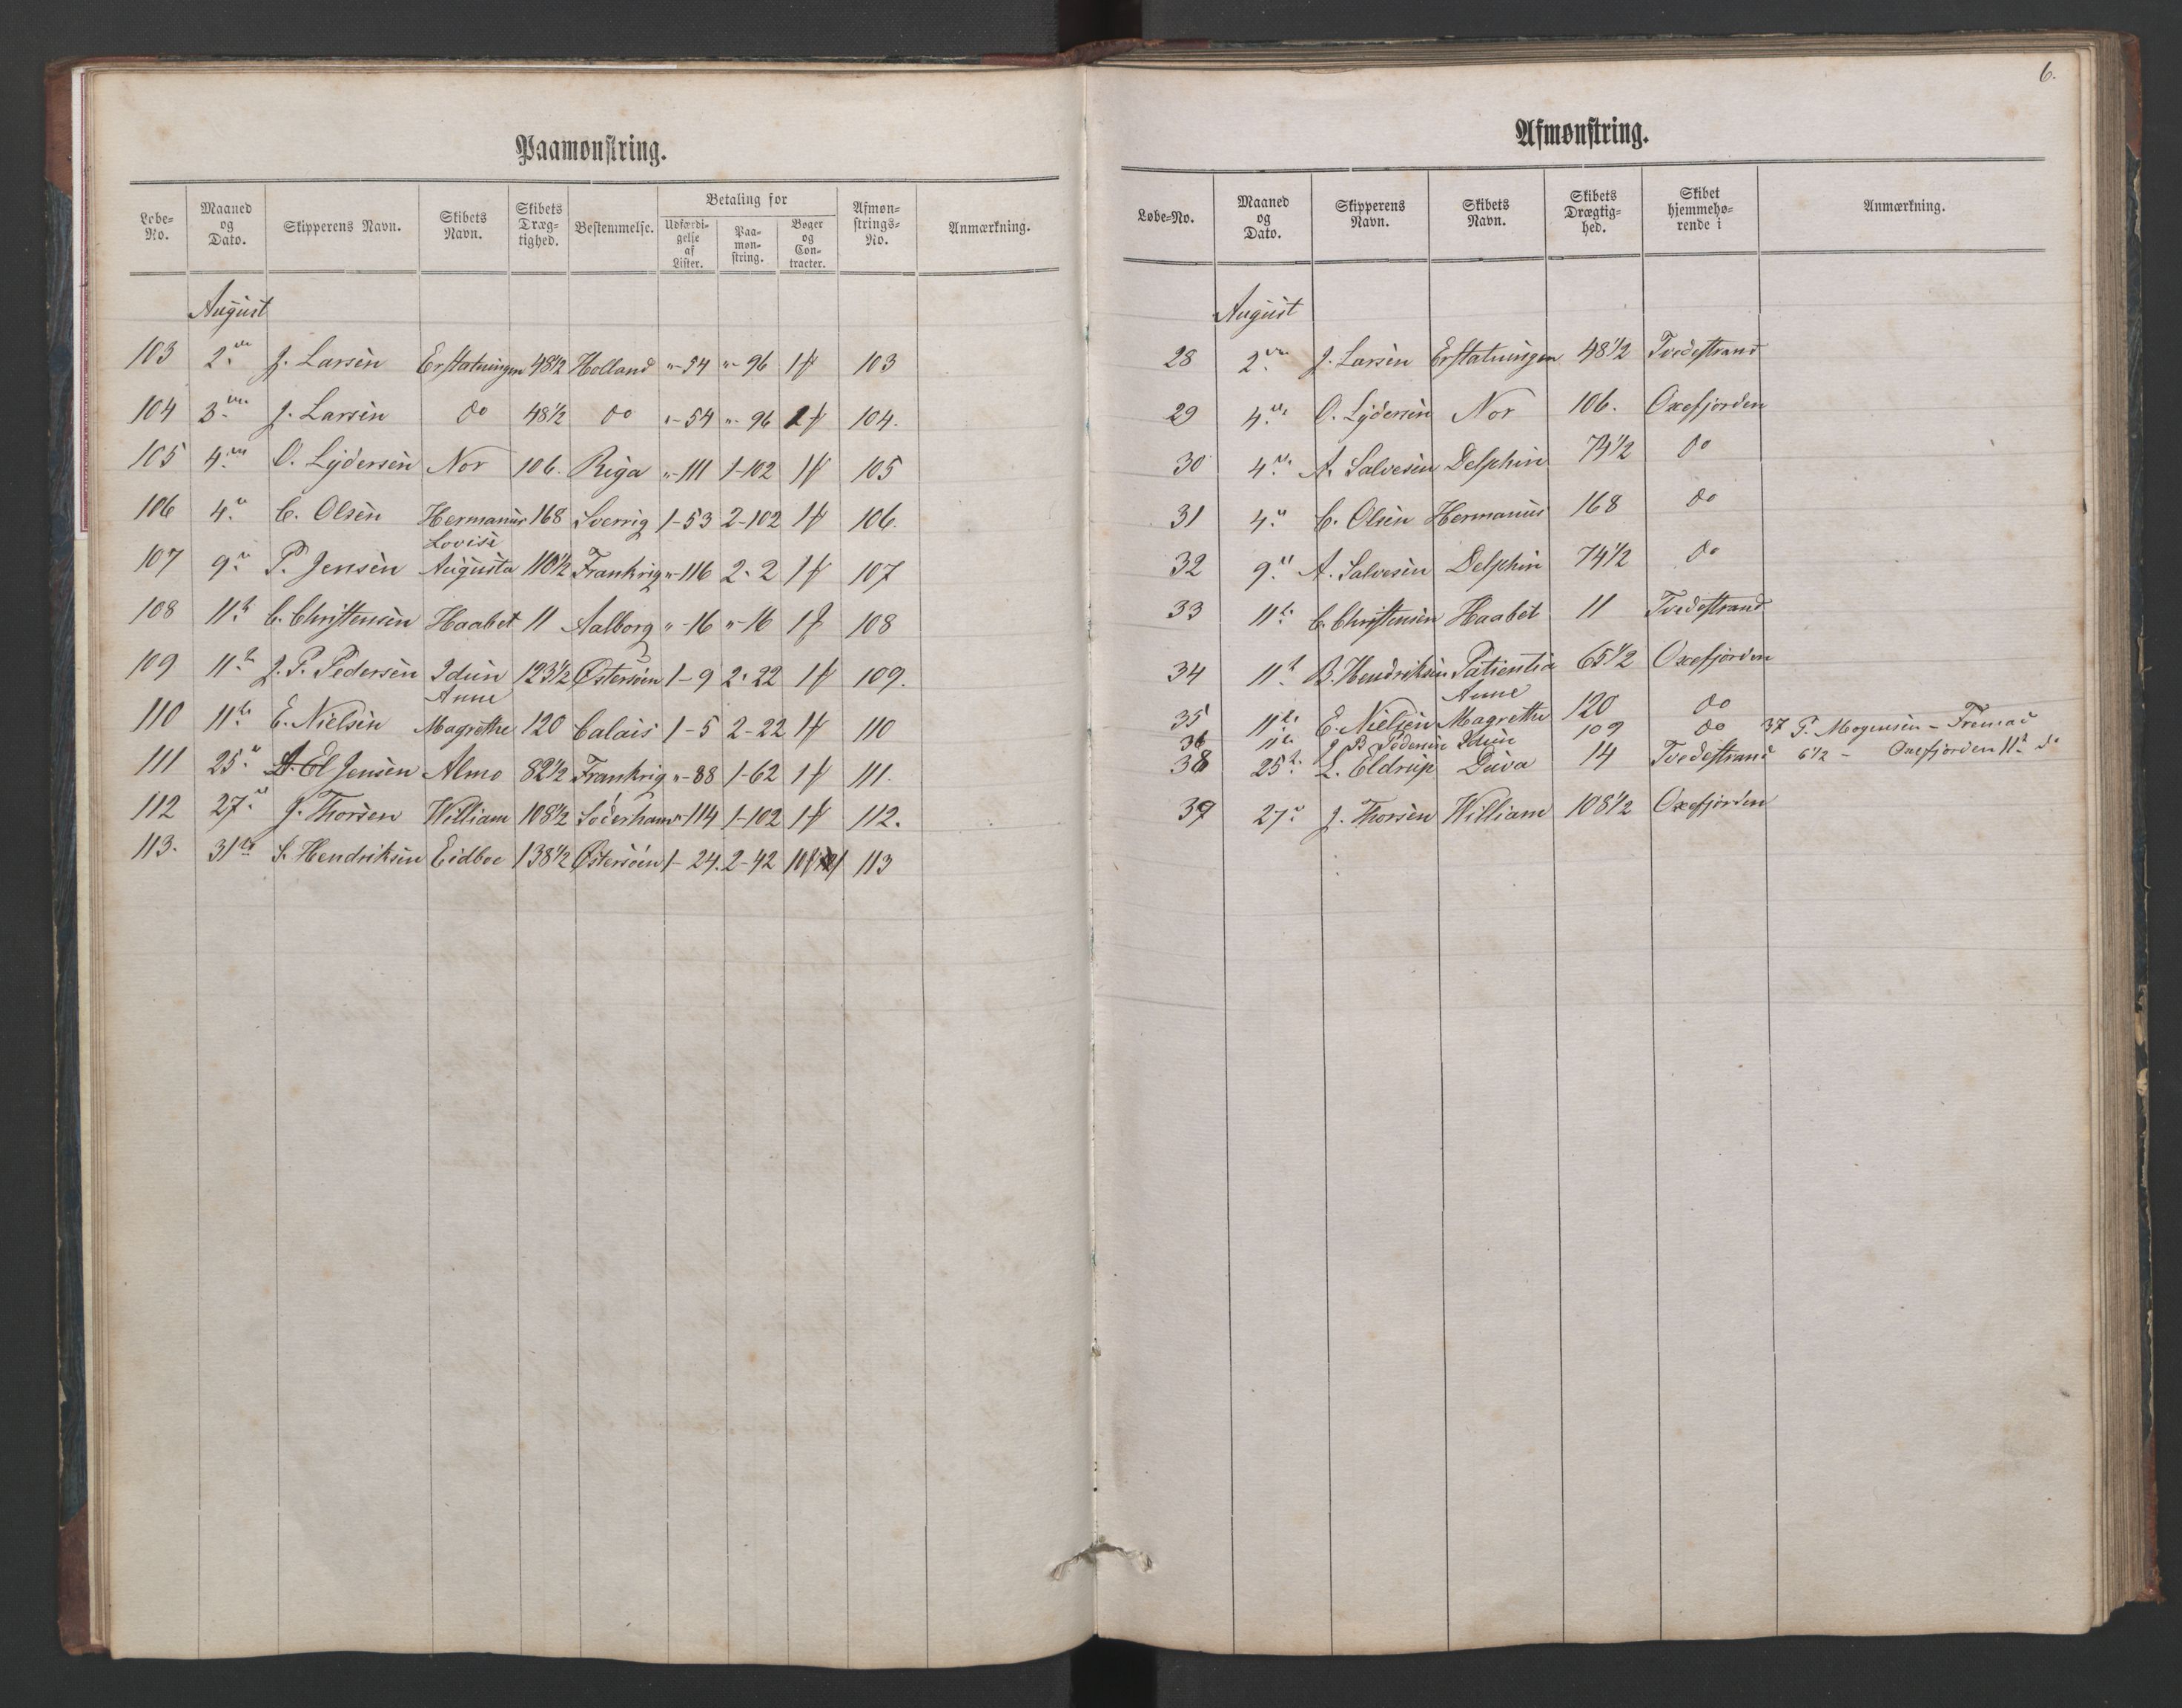 6.
Paamønstring.
Løbe-No. Maaned og Dato. Skipperens Navn. Skibets Navn. Skibets Dræg-tighed. Bestemmelse. Betaling for Udfærdi-gelse af Lister. Paa-møn-string. Bøger og Con-tracter. Afmøn-strings-No. Anmærkning.
August
103 2 J. Larsen Erstatningen 48 1/2 Holland "-54 "-96 1 103
104 3 J. Larsen do 48 1/2 do "-54 "-96 1 104.
105 4 O. Lydersen Nor 106. Riga "-111 1-102 1 105
106 4 C. Olsen Hermanus 168 Sverrig 1-53 2-102 1 106.
Lovise
107 9 P. Jensen Augusta 110 1/2 Frankrig "-116 2-2 1 107
108 11 C. Christensen Haabet 11 Aalborg "-16 "-16 1 108
109 11 J. P. Pedersen Idun 123 1/2 Østersøen 1-9 2-22 1 109.
Anne
110 11 E. Nielsen Magrethe 120 Calais 1-5 2-22 1 110
111 25 Jensen Almo 82 1/2 Frankrig "-88 1-62 1 111.
112 27 J. Thorsen William 108 1/2 Söderhamn "-114 1-102 1 112.
113. 31 S. Hendriksen Eidboe 138 1/2 Østersøen 1-24. 2-42 113
Afmønstring.
Løbe-No. Maaned og Dato. Skipperens Navn. Skibets Navn. Skibets Drægtig-hed. Skibet hjemmehø-rende i Anmærkning.
August
28 2 J. Larsen Erstatningen 48 1/2 Tvedestrand
29 4 O. Lydersen Nor 106. Oxefjorden
30 4 A. Salvesen Delphin 74 1/2 do
31 4 C. Olsen Hermanus 168 do
32 9 A. Salvesen Delphin 74 1/2 do
33 11 C. Christensen Haabet 11 Tvedestrand
34 11 B. Hendriksen Patientia 65 1/2 Oxefjorden
Anne
35 11 E. Nielsen Magrethe 120 do
36 11 J P Pedersen Idun 109 do 37 P. Mogensen - Fremad
38 25 L. Eldrup Duva 14 Tvedestrand 6 1/2 - Oxefjorden 11 do
39 27 J. Thorsen William 108 1/2 Oxefjorden